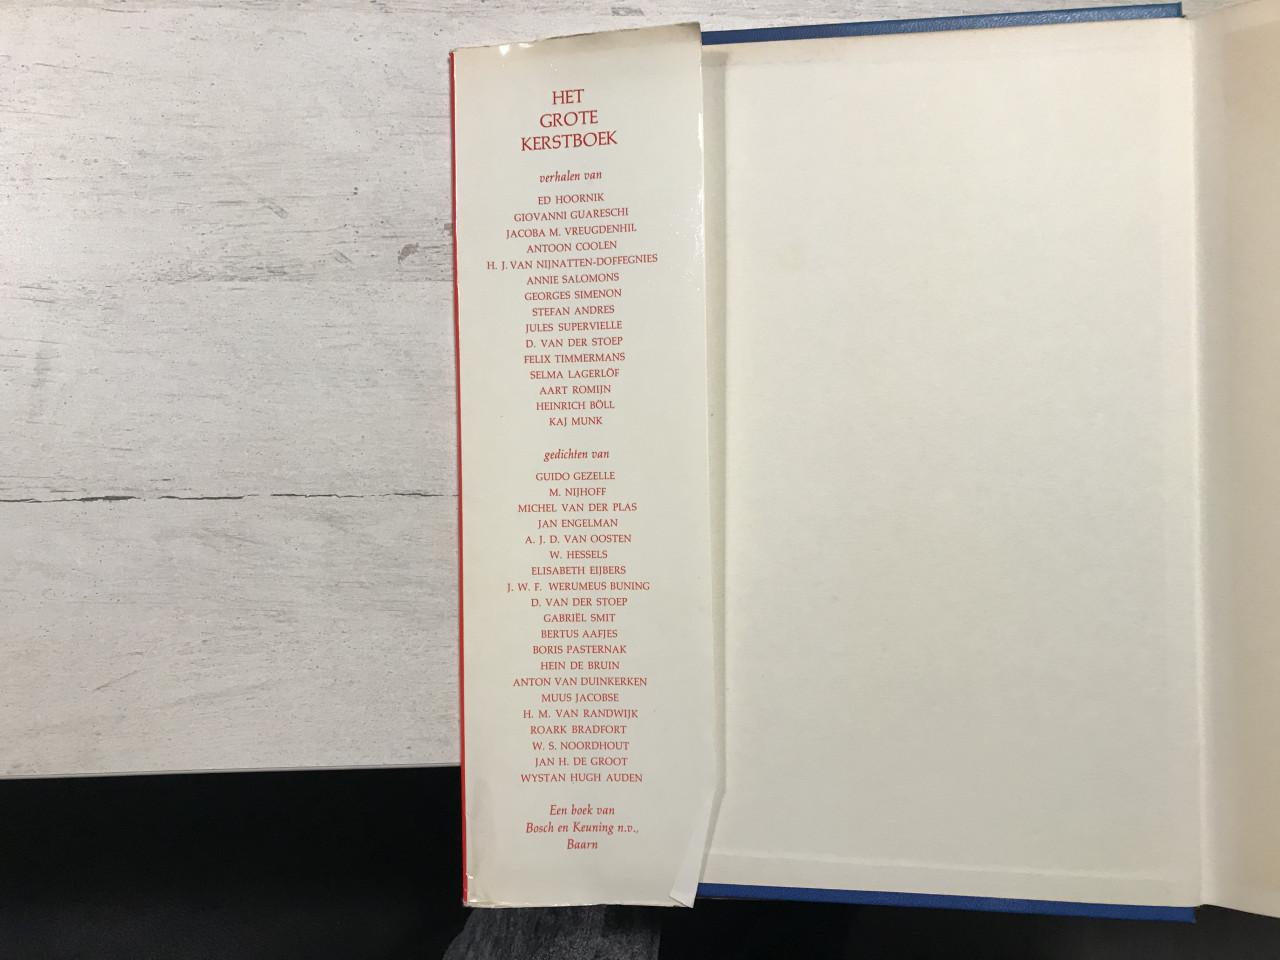 HET
GROTE
KERSTBOEK
verhalen van
ED HOORNIK
GIOVANNI GUARESCHI
JACOBA M. VREUGDENHIL
ANTOON COOLEN
H. J. VAN NIJNATTEN-DOFFEGNIES
ANNIE SALOMONS
GEORGES SIMENON
STEFAN ANDRES
JULES SUPERVIELLE
D. VAN DER STOEP
FELIX TIMMERMANS
SELMA LAGERLÖF
AART ROMIJN
HEINRICH BÖLL
KAJ MUNK
gedichten van
GUIDO GEZELLE
M. NIJHOFF
MICHEL VAN DER PLAS
JAN ENGELMAN
A. J. D. VAN OOSTEN
W. HESSELS
ELISABETH EIJBERS
J. W. F. WERUMEUS BUNING
D. VAN DER STOEP
GABRIËL SMIT
BERTUS AAFJES
BORIS PASTERNAK
HEIN DE BRUIN
ANTON VAN DUINKERKEN
MUUS JACOBSE
H. M. VAN RANDWIJK
ROARK BRADFORT
W. S. NOORDHOUT
JAN H. DE GROOT
WYSTAN HUGH AUDEN
Een boek van
Bosch en Keuning n.v.,
Baarn